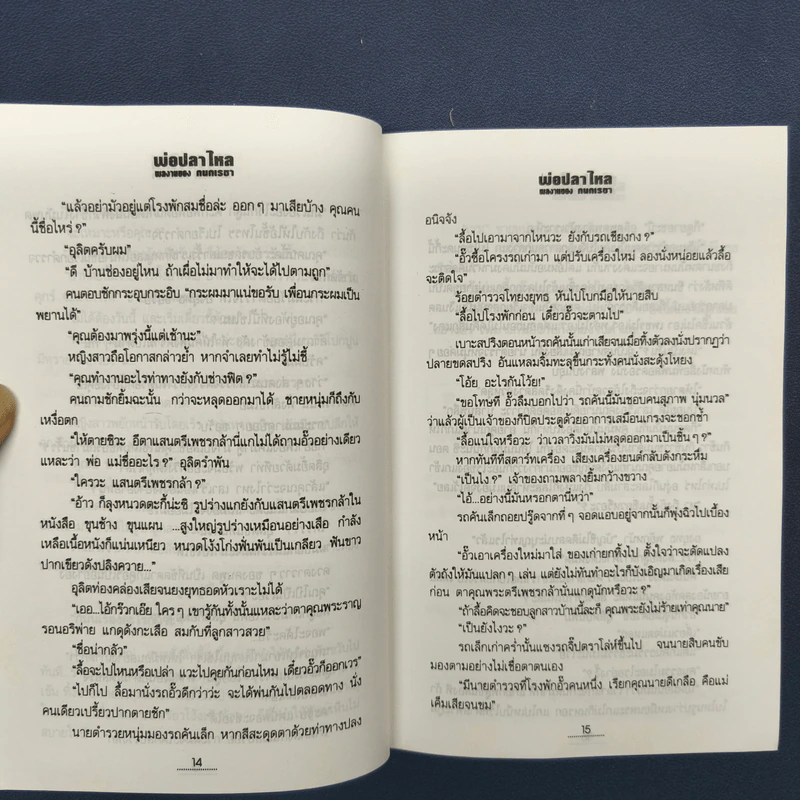 พ่อปลาไหล
ผลงานของ กนกเรขา
“แล้วอย่ามัวอยู่แต่โรงพักสมชื่อล่ะ ออกๆ มาเสียบ้าง คุณคน
นี้ชื่อไหร่ ?”
“อุลิตครับผม”
“ดี บ้านช่องอยู่ไหน ถ้าเผื่อไม่มาทำให้จะได้ไปตามถูก”
คนตอบชักกระอุบกระอิบ “กระผมมาแน่ขอรับ เพื่อนกระผมเป็น
พยานได้”
“คุณต้องมาพรุ่งนี้แต่เช้านะ”
หญิงสาวถือโอกาสกล่าวย้ำ หากจำเลยทำไม่รู้ไม่ชี้
“คุณทำงานอะไรท่าทางยังกับช่างฟิต ?”
คนถามชักยิ้มฉะนั้น กว่าจะหลุดออกมาได้ ชายหนุ่มก็ถึงกับ
เหงื่อตก
“ให้ตายซิวะ อีตาแสนตรีเพชรกล้านี่แกไม่ได้ถามอั๊วอย่างเดียว
แหละว่า พ่อ แม่ชื่ออะไร ?” อุลิตรำพัน
“ใครวะ แสนตรีเพชรกล้า ?”
“อ้าว ก็ลุงหนวดตะกี้น่ะซิ รูปร่างแกยังกับแสนตรีเพชรกล้าใน
หนังสือ ขุนช้าง ขุนแผน ...สูงใหญ่รูปร่างเหมือนอย่างเสือ กำลัง
เหลือเนื้อหนังก็แน่นเหนียว หนวดโง้งโก่งฟั่นพันเป็นเกลียว ฟันขาว
ปากเขียวดังปลิงควาย...”
อุลิตท่องคล่องเสียจนยงยุทธอดหัวเราะไม่ได้
“เออ...ไอ้กร๊วกเอ๊ย ใครๆ เขารู้กันทั้งนั้นแหละว่าตาคุณพระราญ
รอนอริพ่าย แกดุดังกะเสือ สมกับที่ลูกสาวสวย”
“ชื่อน่ากลัว”
“ลื้อจะไปไหนหรือเปล่า แวะไปคุยกันก่อนไหม เดี๋ยวอั๊วก็ออกเวร”
“ไปก็ไป ลื้อมานั่งรถอั๊วดีกว่าว่ะ จะได้พ่นกันไปตลอดทาง นั่ง
คนเดียวเปรี้ยวปากตายชัก”
นายตำรวยหนุ่มมองรถคันเล็ก หากสีสะดุดตาด้วยท่าทางปลง
14
พ่อปลาไหล
ผลงานของ กนกเรขา
อนิจจัง
“ลื้อไปเอามาจากไหนวะ ยังกับรถเชียงกง ?”
“อั๊วซื้อโครงรถเก่ามา แต่ปรับเครื่องใหม่ ลองนั่งหน่อยแล้วลื้อ
จะติดใจ”
ร้อยตำรวจโทยงยุทธ หันไปโบกมือให้นายสิบ
“ลื้อไปโรงพักก่อน เดี๋ยวอั๊วจะตามไป”
เบาะสปริงตอนหน้ารถคันนั้นเก่าเสียจนเมื่อทิ้งตัวลงนั่งปรากฏว่า
ปลายขดสปริง อันแหลมจิ้มทะลุขึ้นกระทั่งคนนั่งสะดุ้งโหยง
“โอ้ย อะไรกันโว้ย!”
“ขอโทษที อั๊วลืมบอกไปว่า รถคันนี้มันชอบคนสุภาพ นุ่มนวล”
ว่าแล้วผู้เป็นเจ้าของก็ปิดประตูด้วยอาการเสมือนเกรงจะชอกช้ำ
“ลื้อแน่ใจหรือวะ ว่าเวลาวิ่งมันไม่หลุดออกมาเป็นชิ้นๆ ?”
หากทันทีที่สตาร์ทเครื่อง เสียงเครื่องยนต์กลับดังกระหึ่ม
“เป็นไง ?” เจ้าของถามพลางยิ้มกว้างขวาง
“ไอ้...อย่างนี้มันหรอกตานี่หว่า”
รถคันเล็กถอยปรู๊ดจากที่ๆ จอดแอบอยู่จากนั้นก็พุ่งฉิวไปเบื้อง
หน้า
“อั๊วเอาเครื่องใหม่มาใส่ ของเก่ายกทิ้งไป ตั้งใจว่าจะดัดแปลง
ตัวถังให้มันแปลกๆ เล่น แต่ยังไม่ทันทำอะไรก็บังเอิญมาเกิดเรื่องเสีย
ก่อน ตาคุณพระแสนตรีเพชรกล้านั่นแกดุนักหรือวะ ?”
“ถ้าลื้อคิดจะชอบลูกสาวบ้านนี้ละก็ คุณพระยังไม่ร้ายเท่าคุณนาย”
“เป็นยังไงวะ ?”
รถเล็กเก่าคร่ำนั้นแซงรถจี๊ปตราโล่ห์ขึ้นไป จนนายสิบคนขับ
มองตามอย่างไม่เชื่อตาตนเอง
“มีนายตำรวจที่โรงพักอั๊วคนหนึ่ง เรียกคุณนายดีเกลือ คือแม่
เค็มเสียจนขม”
15